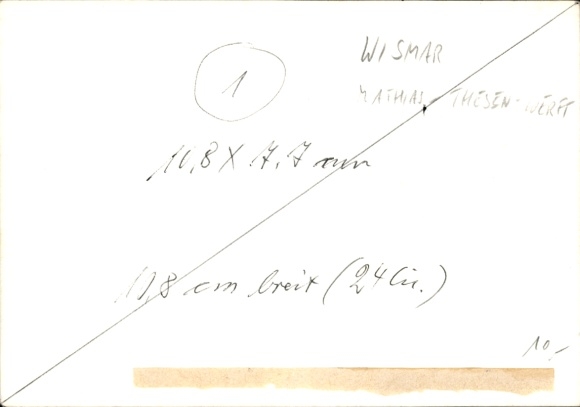 WISMAR
MATHIAS-THESEN-WERFT
1
10,8 X 7,7 cm
11,8 cm breit (24 Cic.)
10,-